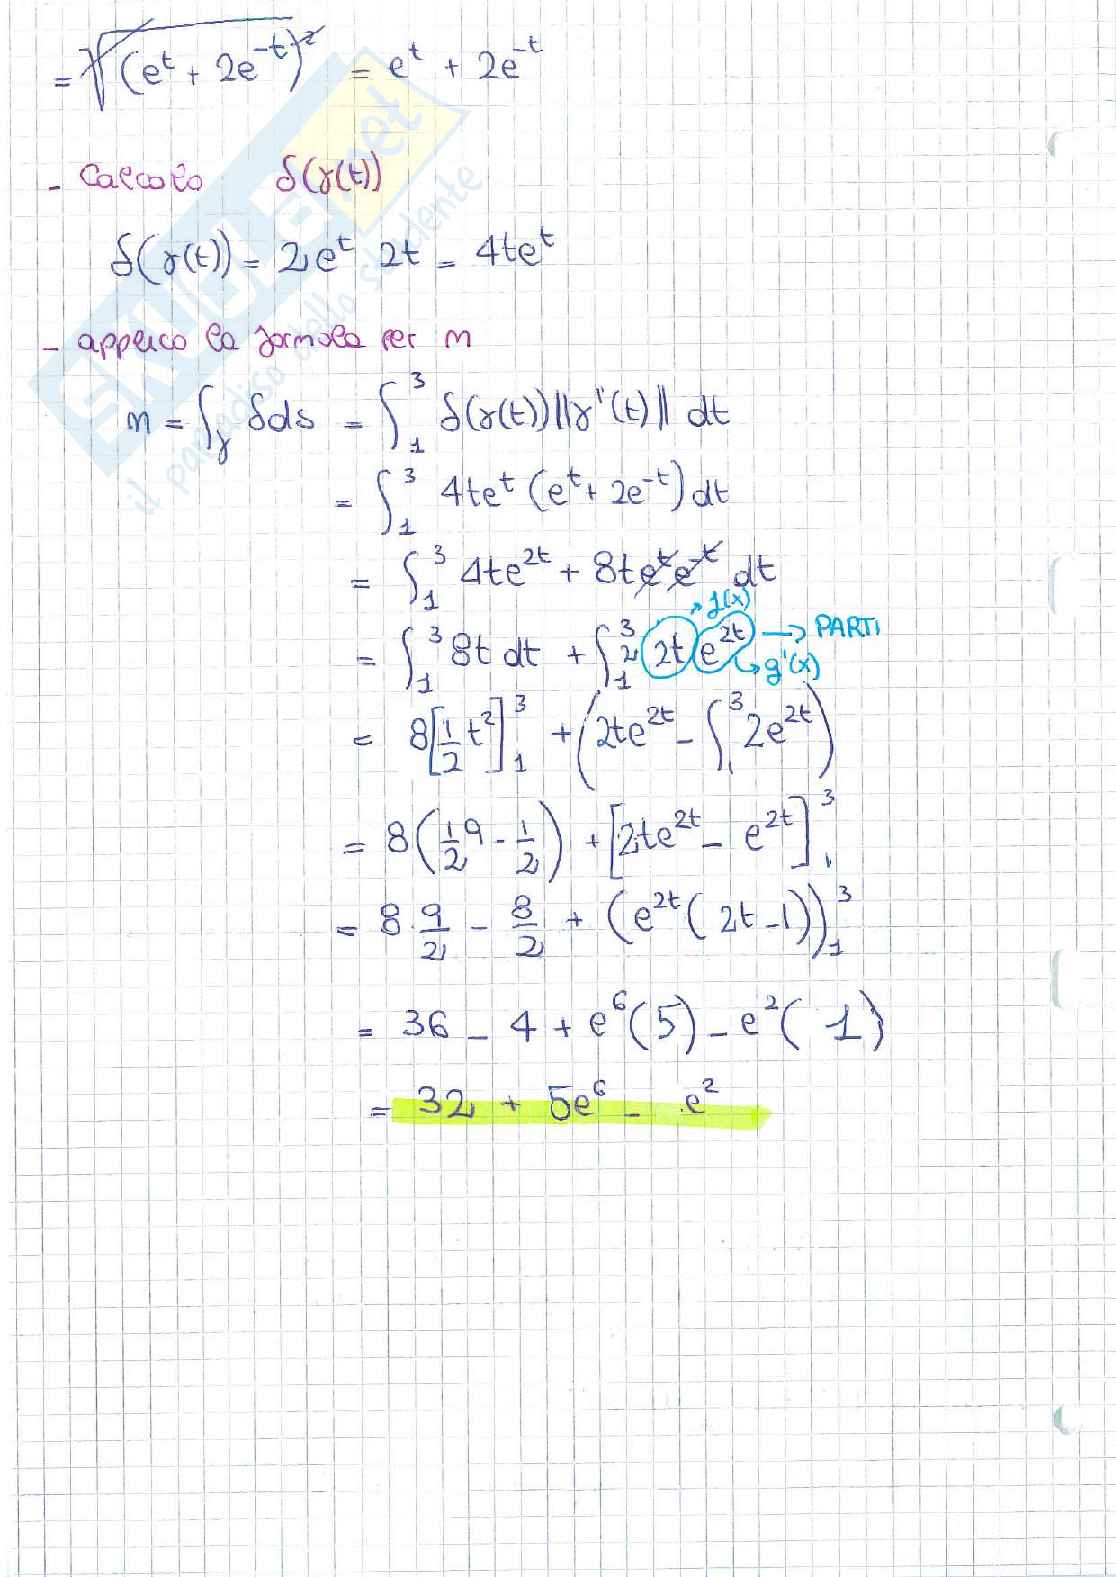 = √(eᵗ + 2e⁻ᵗ)² = eᵗ + 2e⁻ᵗ
- Calcolo δ(γ(t))
δ(γ(t)) = 2eᵗ 2t = 4teᵗ
- applico la formula per m
m = ∫_γ δds = ∫₁³ δ(γ(t))||γ'(t)|| dt
= ∫₁³ 4teᵗ (eᵗ + 2e⁻ᵗ) dt
= ∫₁³ 4te²ᵗ + 8teᵗe⁻ᵗ dt
→ f(x)
= ∫₁³ 8t dt + ∫₁³ 2 2t e²ᵗ → PARTI
→ g'(x)
= 8[1/2 t²]₁³ + (2te²ᵗ - ∫₁³ 2e²ᵗ)
= 8(1/2 9 - 1/2) + [2te²ᵗ - e²ᵗ]₁³
= 8·9/2 - 8/2 + (e²ᵗ(2t-1))₁³
= 36 - 4 + e⁶(5) - e²(1)
= 32 + 5e⁶ - e²
SKUOLA.net
il paradiso dello studente